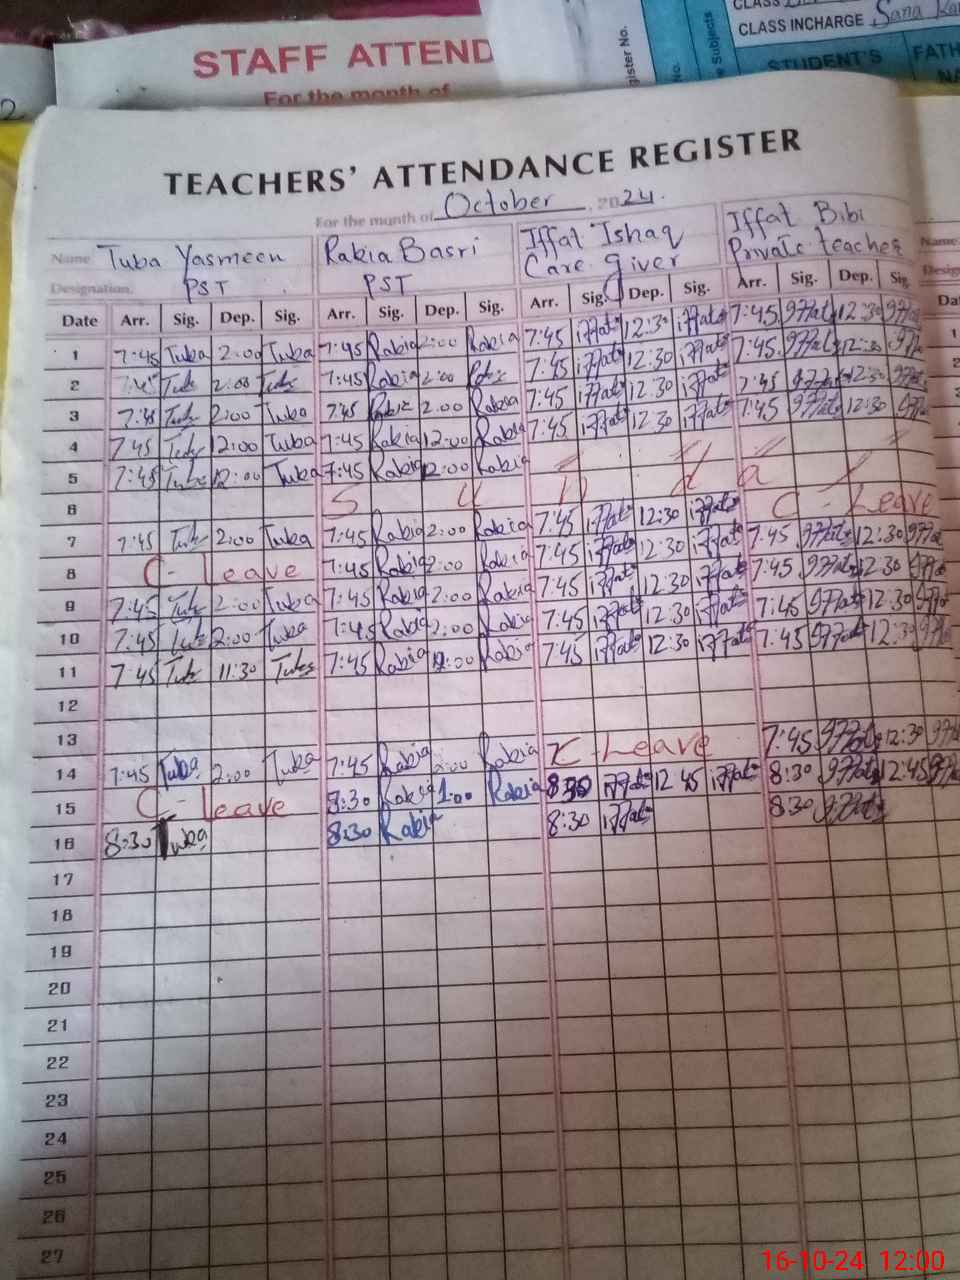 CLASS INCHARGE Sana
STAFF ATTEND
For the month of
STUDENT'S FATH
NA
TEACHERS' ATTENDANCE REGISTER
For the month of October, 2024.
Name Tuba Yasmeen Rabia Basri Iffat Ishaq Iffat Bibi
Designation. PST PST Care giver Private teacher
Date Arr. Sig. Dep. Sig. Arr. Sig. Dep. Sig. Arr. Sig. Dep. Sig. Arr. Sig. Dep. Sig.
1 7:45 Tuba 2:00 Tuba 7:45 Rabia 2:00 Rabia 7:45 iffat 12:30 iffat 7:45 iffat 12:30 iffat
2 Tuba 2:00 Tuba 7:45 Rabia 2:00 Rabia 7:45 iffat 12:30 iffat 7:45 iffat 12:30 iffat
3 7:45 Tuba 2:00 Tuba 7:45 Rabia 2:00 Rabia 7:45 iffat 12:30 iffat 7:45 iffat 12:30 iffat
4 7 45 Tuba 12:00 Tuba 7:45 Rabia 12:00 Rabia 7:45 iffat 12 30 iffat 7:45 iffat 12:30 iffat
5 7:45 Tuba 12:00 Tuba 7:45 Rabia 12:00 Rabia
6 S u n d a y
7 7:45 Tuba 2:00 Tuba 7:45 Rabia 2:00 Rabia 7:45 iffat 12:30 iffat C - Leave
8 C - Leave 7:45 Rabia 2:00 Rabia 7:45 iffat 12:30 iffat 7:45 iffat 12:30 iffat
9 7:45 Tuba 2:00 Tuba 7:45 Rabia 2:00 Rabia 7:45 iffat 12:30 iffat 7:45 iffat 12 30 iffat
10 7:45 Tuba 2:00 Tuba 7:45 Rabia 2:00 Rabia 7:45 iffat 12:30 iffat 7:45 iffat 12:30 iffat
11 7 45 Tuba 11:30 Tuba 7:45 Rabia 12:00 Rabia 7:45 iffat 12:30 iffat 7:45 iffat 12:30 iffat
12
13
14 7:45 Tuba 2:00 Tuba 7:45 Rabia 2:00 Rabia C - Leave 7:45 iffat 12:30 iffat
15 C - Leave 8:30 Rabia 1:00 Rabia 8:30 iffat 12 45 iffat 8:30 iffat 12:45 iffat
16 8:30 Tuba 8:30 Rabia 8:30 iffat 8:30 iffat
17
18
19
20
21
22
23
24
25
26
27
16-10-24 12:00